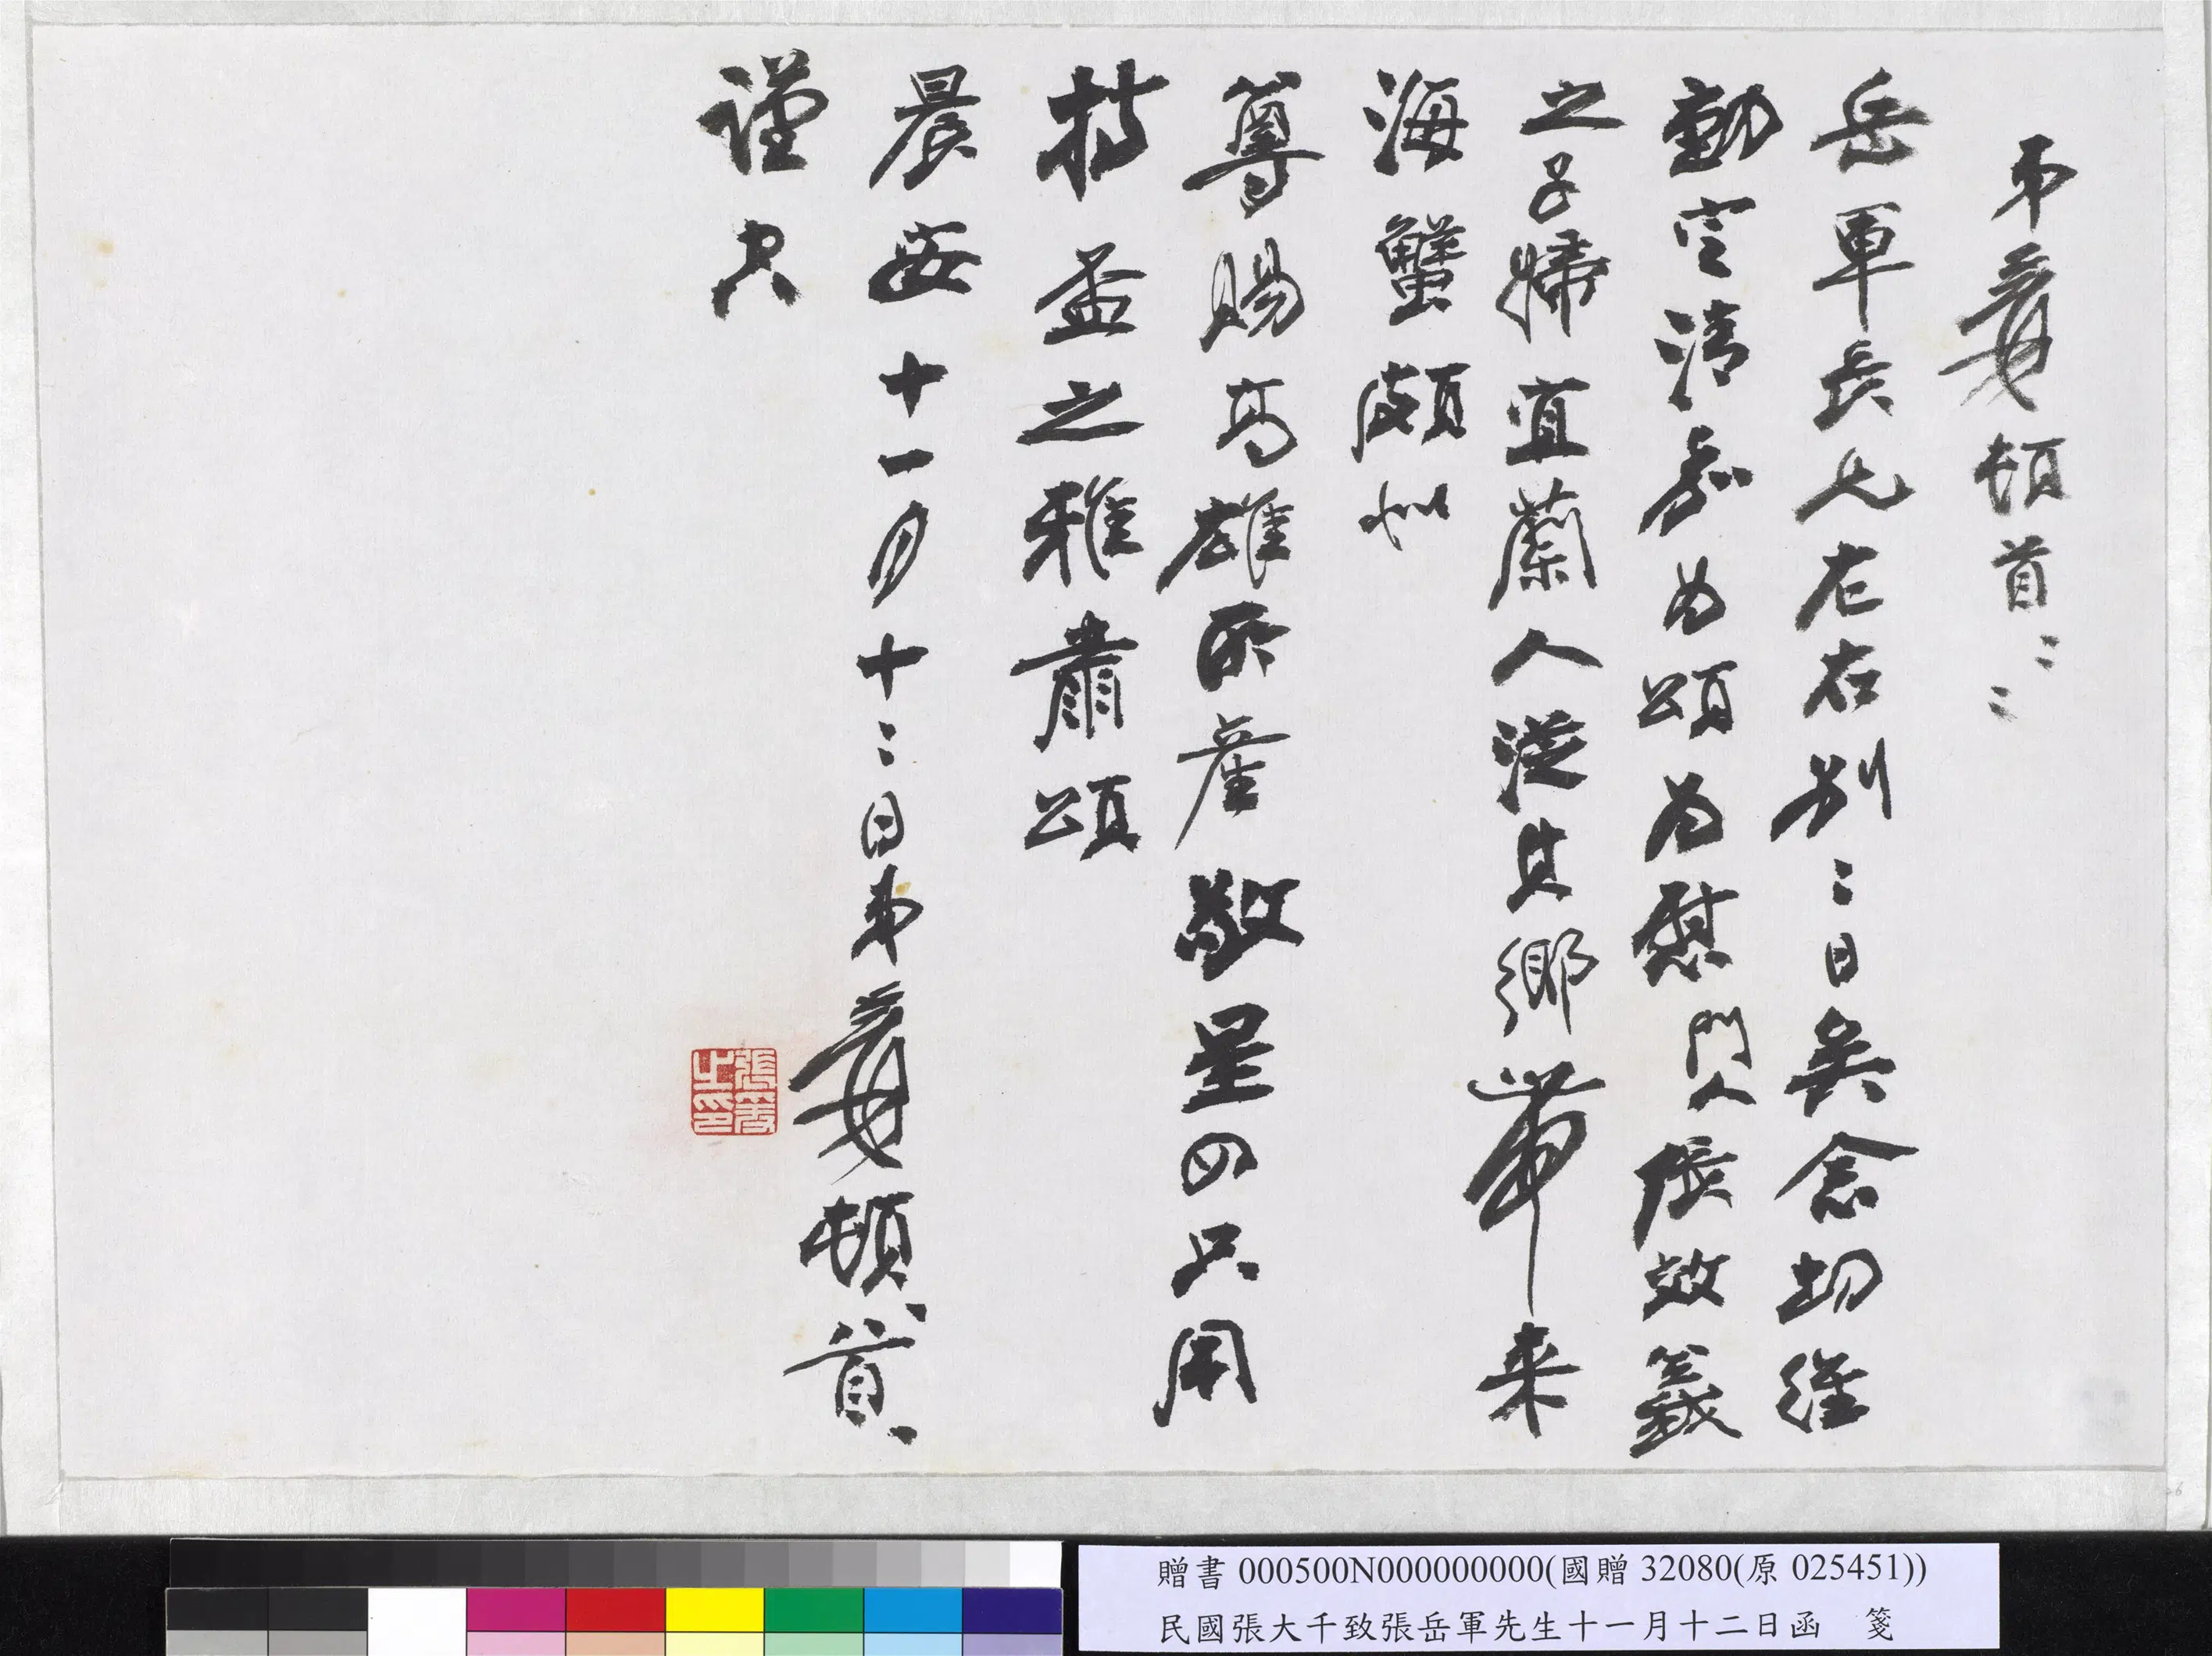 弟爰頓首頓首
岳軍長兄左右別二日矣念切維
動定清豫為頌為慰門人張效義
之子婦宜蘭人從其鄉帶來
海蟹頗似
尊賜高雄所產敬呈四只用
持盃之雅肅頌
晨安十一月十二日弟爰頓首
謹空
張爰之印
贈書 000500N000000000(國贈 32080(原 025451))
民國張大千致張岳軍先生十一月十二日函 箋